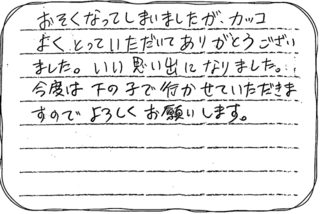 おそくなってしまいましたが、カッコ
よくとっていただいてありがとうござい
ました。いい思い出になりました。
今度は下の子で行かせていただきま
すのでよろしくお願いします。